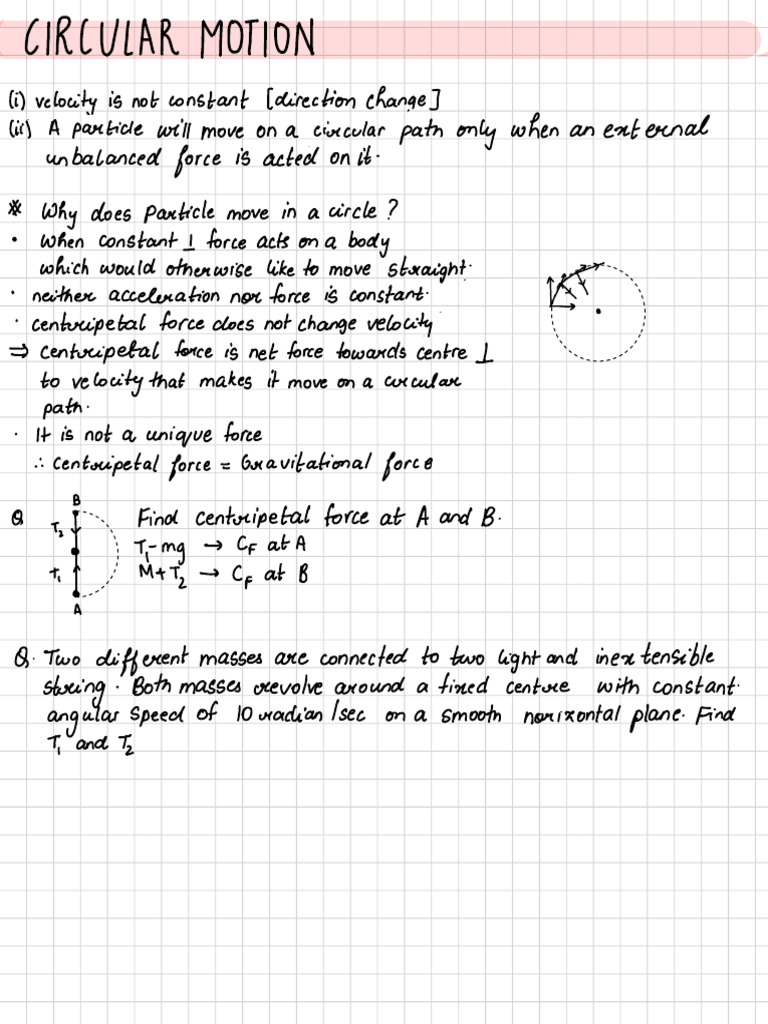 CIRCULAR MOTION
(i) velocity is not constant [direction change]
(ii) A particle will move on a circular path only when an external
unbalanced force is acted on it.
* Why does Particle move in a circle?
• when constant ⊥ force acts on a body
which would otherwise like to move straight.
· neither acceleration nor force is constant.
· centripetal force does not change velocity
⇒ centripetal force is net force towards centre ⊥
to velocity that makes it move on a circular
path.
· It is not a unique force
∴ centripetal force = Gravitational force
Q
B
T₂
T₁
A
Find centripetal force at A and B.
T₁-mg → C_F at A
M+T₂ → C_F at B
Q. Two different masses are connected to two light and inextensible
string. Both masses revolve around a fixed centre with constant
angular speed of 10 radian/sec on a smooth horizontal plane. Find
T₁ and T₂